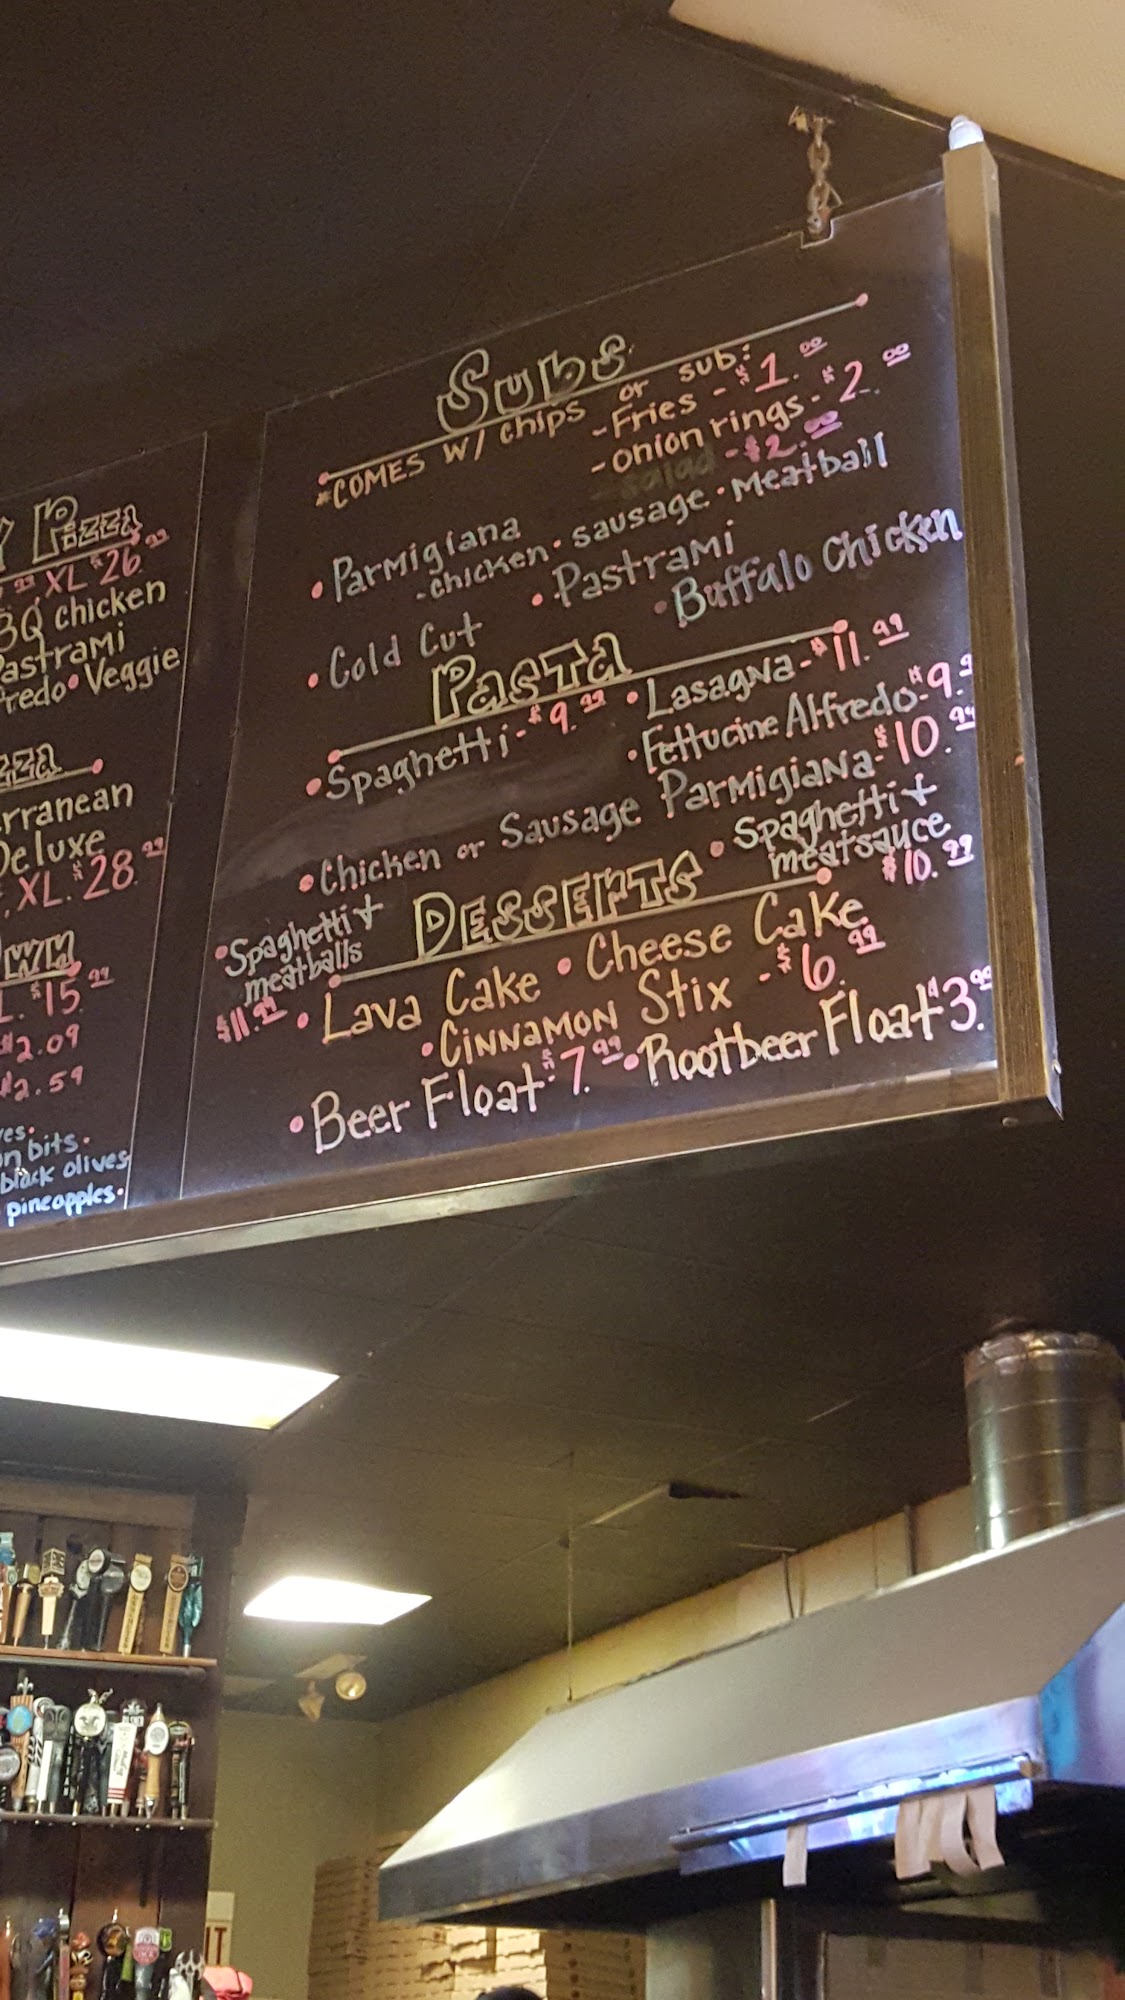 Pizza
XL $26.99
BQ chicken
Pastrami
redo • Veggie
zza
rranean
Deluxe
XL. $28.99
wn
L. $15.99
$2.09
$2.59
bits.
black olives
pineapples.
Subs
*COMES W/ chips or sub:
-Fries - $1.00
-onion rings - $2.00
-salad - $2.00
• Parmigiana
-chicken • sausage • Meatball
• Cold Cut • Pastrami
• Buffalo Chicken
Pasta
• Spaghetti - $9.99 • Lasagna - $11.99
• Fettucine Alfredo - $9.9
• Chicken or Sausage Parmigiana - $10.99
• Spaghetti + meatballs $11.99
• Spaghetti + meatsauce $10.99
Desserts
• Lava Cake • Cheese Cake
• Cinnamon Stix - $6.99
• Beer Float - $7.99 • Rootbeer Float $3.99
IT